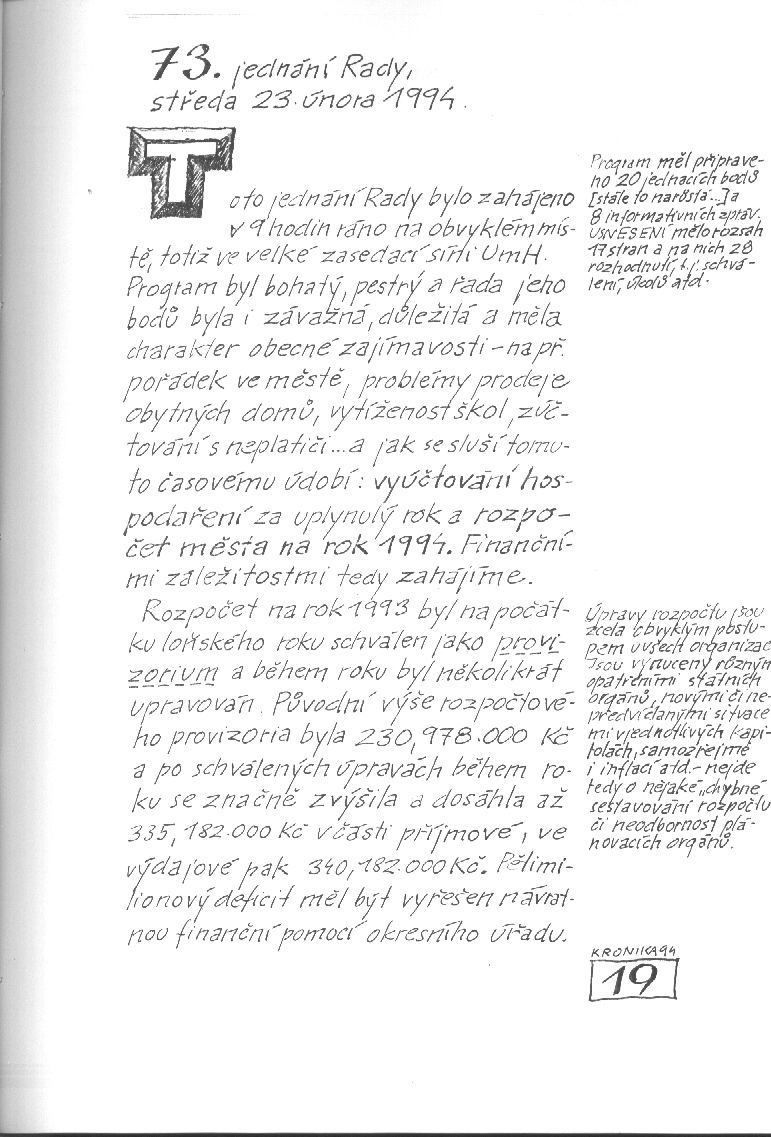 73. jednání Rady,
středa 23. února 1994.
Toto jednání Rady bylo zahájeno
v 9 hodin ráno na obvyklém mís-
tě, totiž ve velké zasedací síni UmH.
Program byl bohatý, pestrý a řada jeho
bodů byla i závažná, důležitá a měla
charakter obecné zajímavosti – např.
pořádek ve městě, problémy prodeje
obytných domů, vytíženost škol, zúč-
tování s neplatiči...a jak se sluší tomu-
to časovému údobí: vyúčtování hos-
podaření za uplynulý rok a rozpo-
čet města na rok 1994. Finanční-
mi záležitostmi tedy zahájíme.
Rozpočet na rok 1993 byl na počát-
ku loňského roku schválen jako provi-
zorium a během roku byl několikrát
upravován. Původní výše rozpočtové-
ho provizoria byla 230,978.000 Kč
a po schválených úpravách během ro-
ku se značně zvýšila a dosáhla až
335,182.000 Kč v části příjmové, ve
výdajové pak 340,182.000 Kč. Pětimi-
lionový deficit měl být vyřešen návrat-
nou finanční pomocí okresního úřadu.
Program měl připrave-
no 20 jednacích bodů
[stále to narůstá...] a
8 informativních zpráv.
USNESENÍ mělo rozsah
17 stran a na nich 28
rozhodnutí, t.j. schvá-
lení, úkolů atd.
Úpravy rozpočtu jsou
zcela obvyklým postu-
pem u všech organizac
Jsou vynuceny různým
opatřeními státních
orgánů, novými či ne-
předvídanými situace
mi v jednotlivých kapi-
tolách, samozřejmě
i inflací atd. – nejde
tedy o nějaké „chybné
sestavování rozpočtu
či neodbornost plá-
novacích orgánů.
KRONIKA 94
19